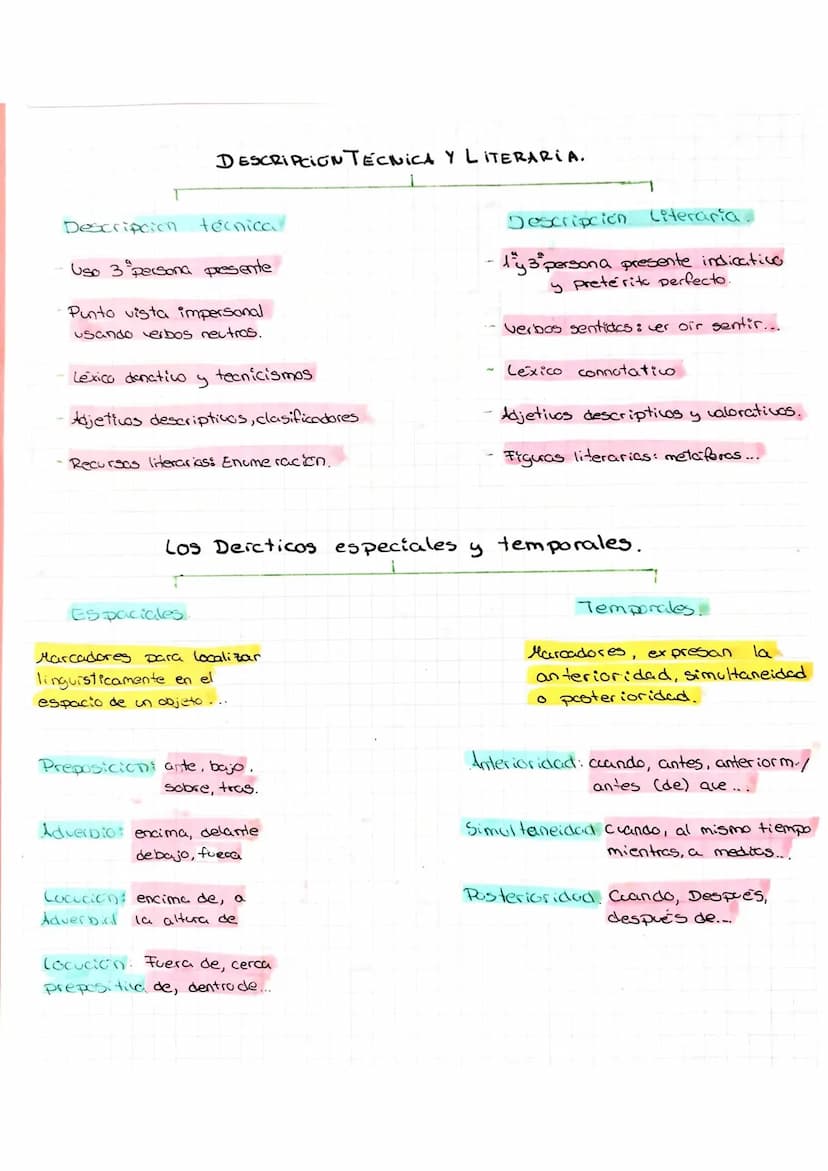 DESCRIPCION TÉCNICA Y LITERARIA.
Descripcion técnica
- Uso 3ª persona presente
- Punto vista impersonal
usando verbos neutros.
- Léxico denotivo y tecnicismos
- Adjetivos descriptivos, clasificadores
- Recursos literarios: Enumeración.
Descripción Literaria.
- 1ª y 3ª persona presente indicativo
y pretérito perfecto.
- verbos sentidos: ver oir sentir...
- Léxico connotativo
- Adjetivos descriptivos y valorativos.
- Figuras literarias: metáforas...
Los Deícticos especiales y temporales.
Espaciales.
Marcadores para localizar
linguísticamente en el
espacio de un objeto...
Preposición: ante, bajo,
sobre, tras.
Adverbio: encima, delante
debajo, fuera
Locución: encima de, a
Adverbial la altura de
Locución. Fuera de, cerca
prepositiva de, dentro de...
Temporales.
Marcadores, expresan la
anterioridad, simultaneidad
o posterioridad.
Anterioridad: cuando, antes, anteriorm./
antes (de) que...
Simultaneidad Cuando, al mismo tiempo
mientras, a medias...
Posterioridad. Cuando, Después,
después de...